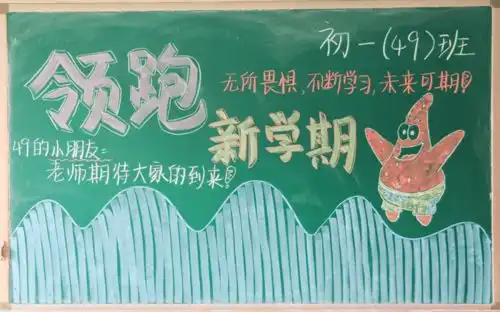 初一(49)班
领跑
无所畏惧,不断学习,未来可期!
新学期
49的小朋友:
老师期待大家的到来!